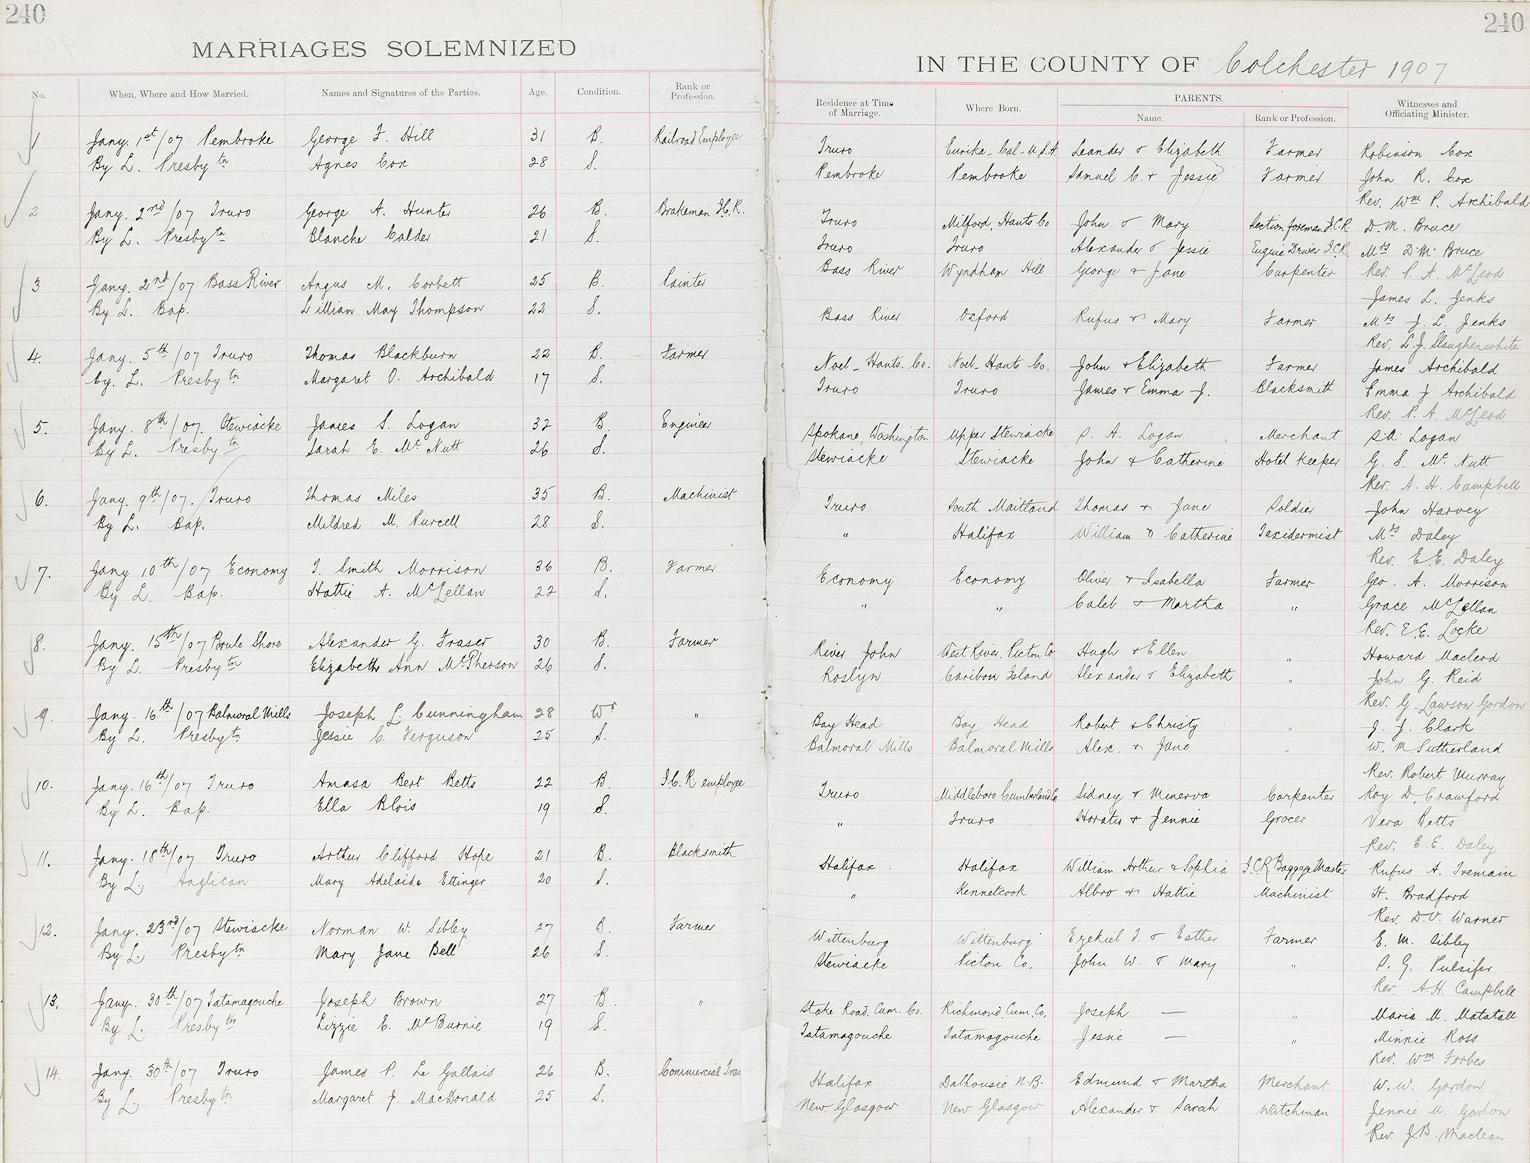 240
240
MARRIAGES SOLEMNIZED
IN THE COUNTY OF Colchester 1907
No. When, Where and How Married. Names and Signatures of the Parties. Age. Condition. Rank or Profession.
Residence at Time of Marriage. Where Born. PARENTS. Name. Rank or Profession. Witnesses and Officiating Minister.
1 Jany. 1st/07 Pembroke George F. Hill 31 B. Railroad Employee Truro Eureka - Cal - U.S.A. Leander & Elizabeth Farmer Robinson Cox
By L. Presbytn Agnes Cox 28 S. Pembroke Pembroke Samuel C. & Jessie Farmer John R. Cox
Rev. Wm P. Archibald
2 Jany. 2nd/07 Truro George A. Hunter 26 B. Brakeman I.C.R. Truro Milford, Hants Co John & Mary Section foreman I.C.R. D. M. Bruce
By L. Presbytn Blanche Calder 21 S. Truro Truro Alexander & Jessie Engine Driver I.C.R. Mrs D. M. Bruce
Rev. P. A. McLeod
3 Jany. 2nd/07 Bass River Angus M. Corbett 25 B. Painter Bass River Wyndham Hill George & Jane Carpenter James L. Jenks
By L. Bap. Lillian May Thompson 22 S. Bass River Oxford Rufus & Mary Farmer Mrs J. L. Jenks
Rev. L. J. Slaughenwhite
4. Jany. 5th/07 Truro Thomas Blackburn 22 B. Farmer Noel - Hants. Co. Noel - Hants Co. John & Elizabeth Farmer James Archibald
By. L. Presbytn Margaret O. Archibald 17 S. Truro Truro James & Emma J. Blacksmith Emma J Archibald
Rev. P. A. McLeod
5. Jany. 8th/07. Stewiacke James S. Logan 32 B. Engineer Spokane, Washington Upper Stewiacke S. A. Logan Merchant S A Logan
By L. Presbytn Sarah E. McNutt 26 S. Stewiacke Stewiacke John & Catherine Hotel Keeper G. S. McNutt
Rev. A. H. Campbell
6. Jany. 9th/07. Truro Thomas Miles 35 B. Machinist Truro South Maitland Thomas & Jane Soldier John Harvey
By L. Bap. Mildred M. Purcell 28 S. " Halifax William & Catherine Taxidermist Mrs Daley
Rev. E. E. Daley
7. Jany 10th/07 Economy T. Smith Morrison 36 B. Farmer Economy Economy Oliver & Isabella Farmer Geo. A. Morrison
By L. Bap. Hattie A. McLellan 22 S. " " Caleb & Martha " Grace McLellan
Rev. E. E. Locke
8. Jany. 15th/07 Brule Shore Alexander G. Fraser 30 B. Farmer River John West River, Pictou Co Hugh & Ellen " Howard Macleod
By L. Presbytn Elizabeth Ann McPherson 26 S. Roslyn Caribou Island Alexander & Elizabeth " John G. Reid
Rev. G. Lawson Gordon
9. Jany. 16th/07 Balmoral Mills Joseph L Cunningham 28 Wr " Bay Head Bay Head Robert & Christy " J. J. Clark
By L. Presbytn Jessie C. Ferguson 25 S. Balmoral Mills Balmoral Mills Alex. & Jane " W. M Sutherland
Rev. Robert Murray
10. Jany. 16th/07 Truro Amasa Bert Betts 22 B. I.C.R employee Truro Middleboro Cumberland Co Sidney & Minerva Carpenter Roy D. Crawford
By L. Bap. Ella Blois 19 S. " Truro Horatio & Jennie Grocer Vera Betts
Rev. E. E. Daley
11. Jany. 18th/07 Truro Arthur Clifford Hope 21 B. Blacksmith Halifax Halifax William Arthur & Sophia I.C.R Baggage Master Rufus A. Tremain
By L. Anglican Mary Adelaide Ettinger 20 S. " Kennetcook Albro & Hattie Machinist H. Bradford
Rev. D. V. Warner
12. Jany. 23rd/07 Stewiacke Norman W. Sibley 27 B. Farmer Wittenburg Wittenburg Ezekiel T. & Esther Farmer E. M. Sibley
By L. Presbytn Mary Jane Bell 26 S. Stewiacke Pictou Co. John W. & Mary " S. G. Pulsifer
Rev. A H. Campbell
13. Jany. 30th/07 Tatamagouche Joseph Brown 27 B. " Stake Road, Cum. Co. Richmond, Cum. Co. Joseph — " Maria M. Matatall
By L. Presbytn Lizzie E. McBurnie 19 S. Tatamagouche Tatamagouche Jessie — " Minnie Ross
Rev. Wm Forbes
14. Jany. 30th/07 Truro James P. Le Gallais 26 B. Commercial Trav Halifax Dalhousie N.B. Edmund & Martha Merchant W. W. Gordon
By L. Presbytn Margaret J. MacDonald 25 S. New Glasgow New Glasgow Alexander & Sarah Watchman Jennie M. Gordon
Rev. J. B. Maclean